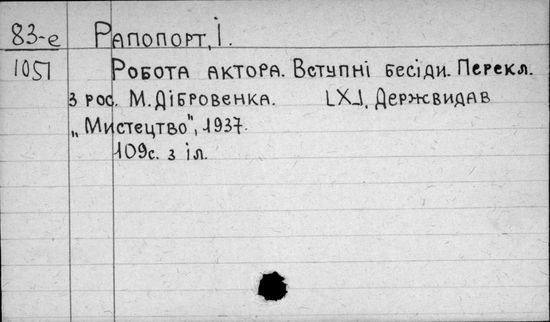 83-е Рапопорт, І.
1051 Робота актора. Вступні бесіди. Перекл.
з рос. М. Дібровенка. [Х.], Держвидав
„Мистецтво", 1937.
109с. з іл.